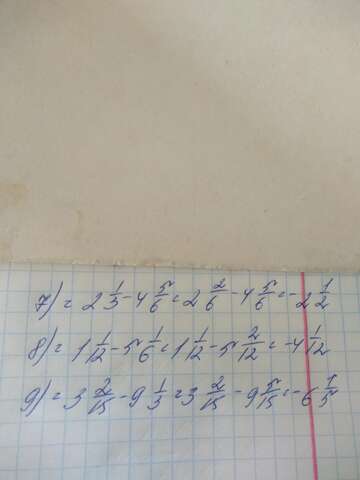 7) = 2 1/3 - 4 5/6 = 2 2/6 - 4 5/6 = - 2 1/2
8) = 1 1/12 - 5 1/6 = 1 1/12 - 5 2/12 = - 4 1/12
9) = 3 2/15 - 9 1/3 = 3 2/15 - 9 5/15 = - 6 1/5